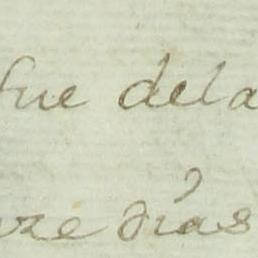 fue dela
nze días